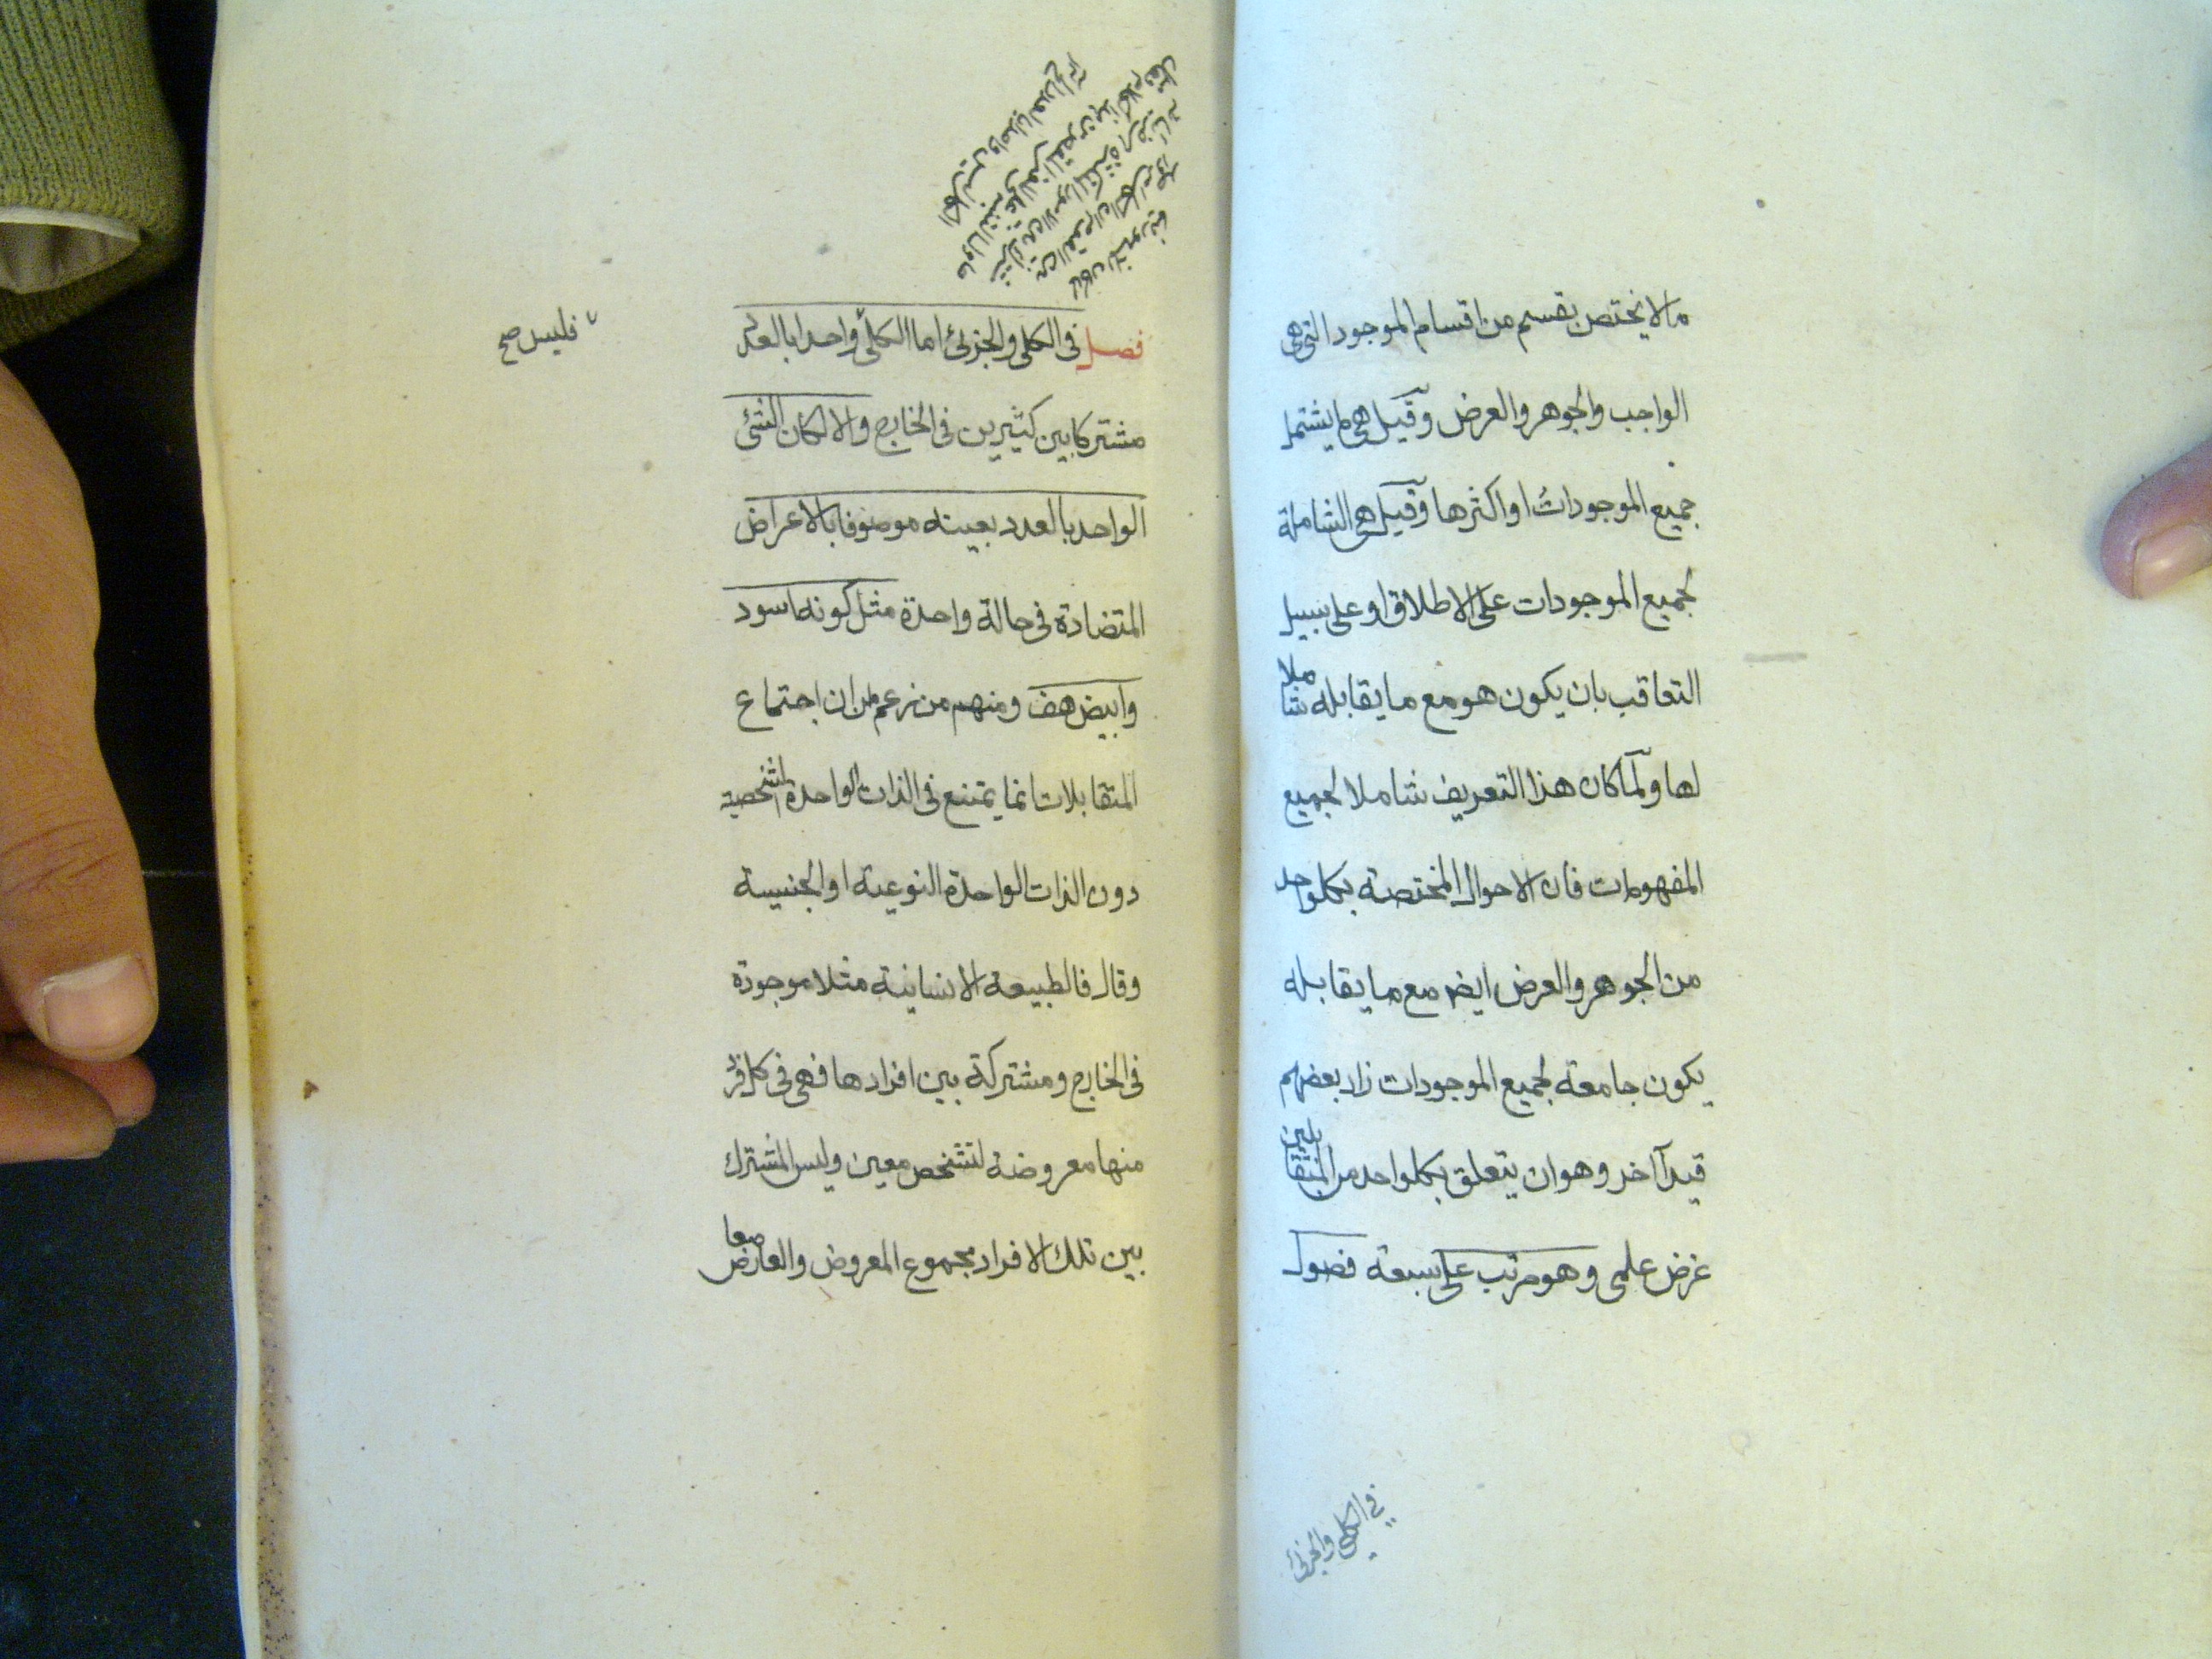 ما لا يختص بقسم من اقسام الموجود التى هى
الواجب والجوهر والعرض وقيل هى ما يشتمل
جميع الموجودات او اكثرها وقيل هى الشاملة
لجميع الموجودات على الاطلاق او على سبيل
التعاقب بان يكون هو مع ما يقابله شاملا
لها ولما كان هذا التعريف شاملا لجميع
المفهومات فان الاحوال المختصة بكل واحد
من الجوهر والعرض ايضا مع ما يقابله
يكون جامعة لجميع الموجودات زاد بعضهم
قيدا آخر وهو ان يتعلق بكل واحد من المتقابلين
غرض علمى وهو مرتب على سبعة فصول
فى الكلى والجزئى
فصل فى الكلى والجزئى اما الكلى واحدا بالعدد
مشتركا بين كثيرين فى الخارج والا لكان الشئ
الواحد بالعدد بعينه موصوفا بالاعراض
المتضادة فى حالة واحدة مثل كونه اسود
وابيض هف ومنهم من زعم من ان اجتماع
المتقابلات انما يمتنع فى الذات الواحدة الشخصية
دون الذات الواحدة النوعية او الجنسية
وقال فالطبيعة الانسانية مثلا موجودة
فى الخارج ومشتركة بين افرادها فهى فى كل فرد
منها معروضة لتشخص معين وليس المشترك
بين تلك الافراد مجموع المعروض والعارض معا
فليس صح